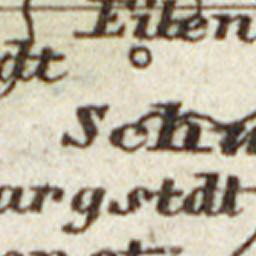 Eilen
dt
Schu
argstdt